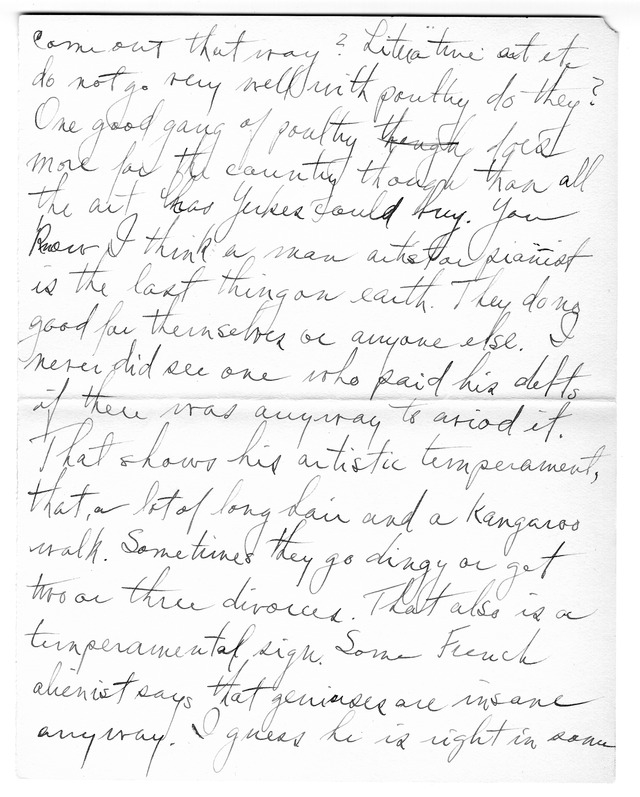 come out that way? Literature art etc
do not go very well with poultry do they?
One good gang of poultry though does
more for the country though than all
the art has Yerkes could buy. You
know I think a man artist or pianist
is the last thing on earth. They do no
good for themselves or anyone else. I
never did see one who paid his debts
if there was anyway to aviod it.
That shows his artistic temperament,
that, a lot of long hair and a Kangaroo
walk. Sometimes they go dingy or get
two or three divorces. That also is a
temperamental sign. Some French
alienist says that geniuses are insane
anyway. I guess he is right in some